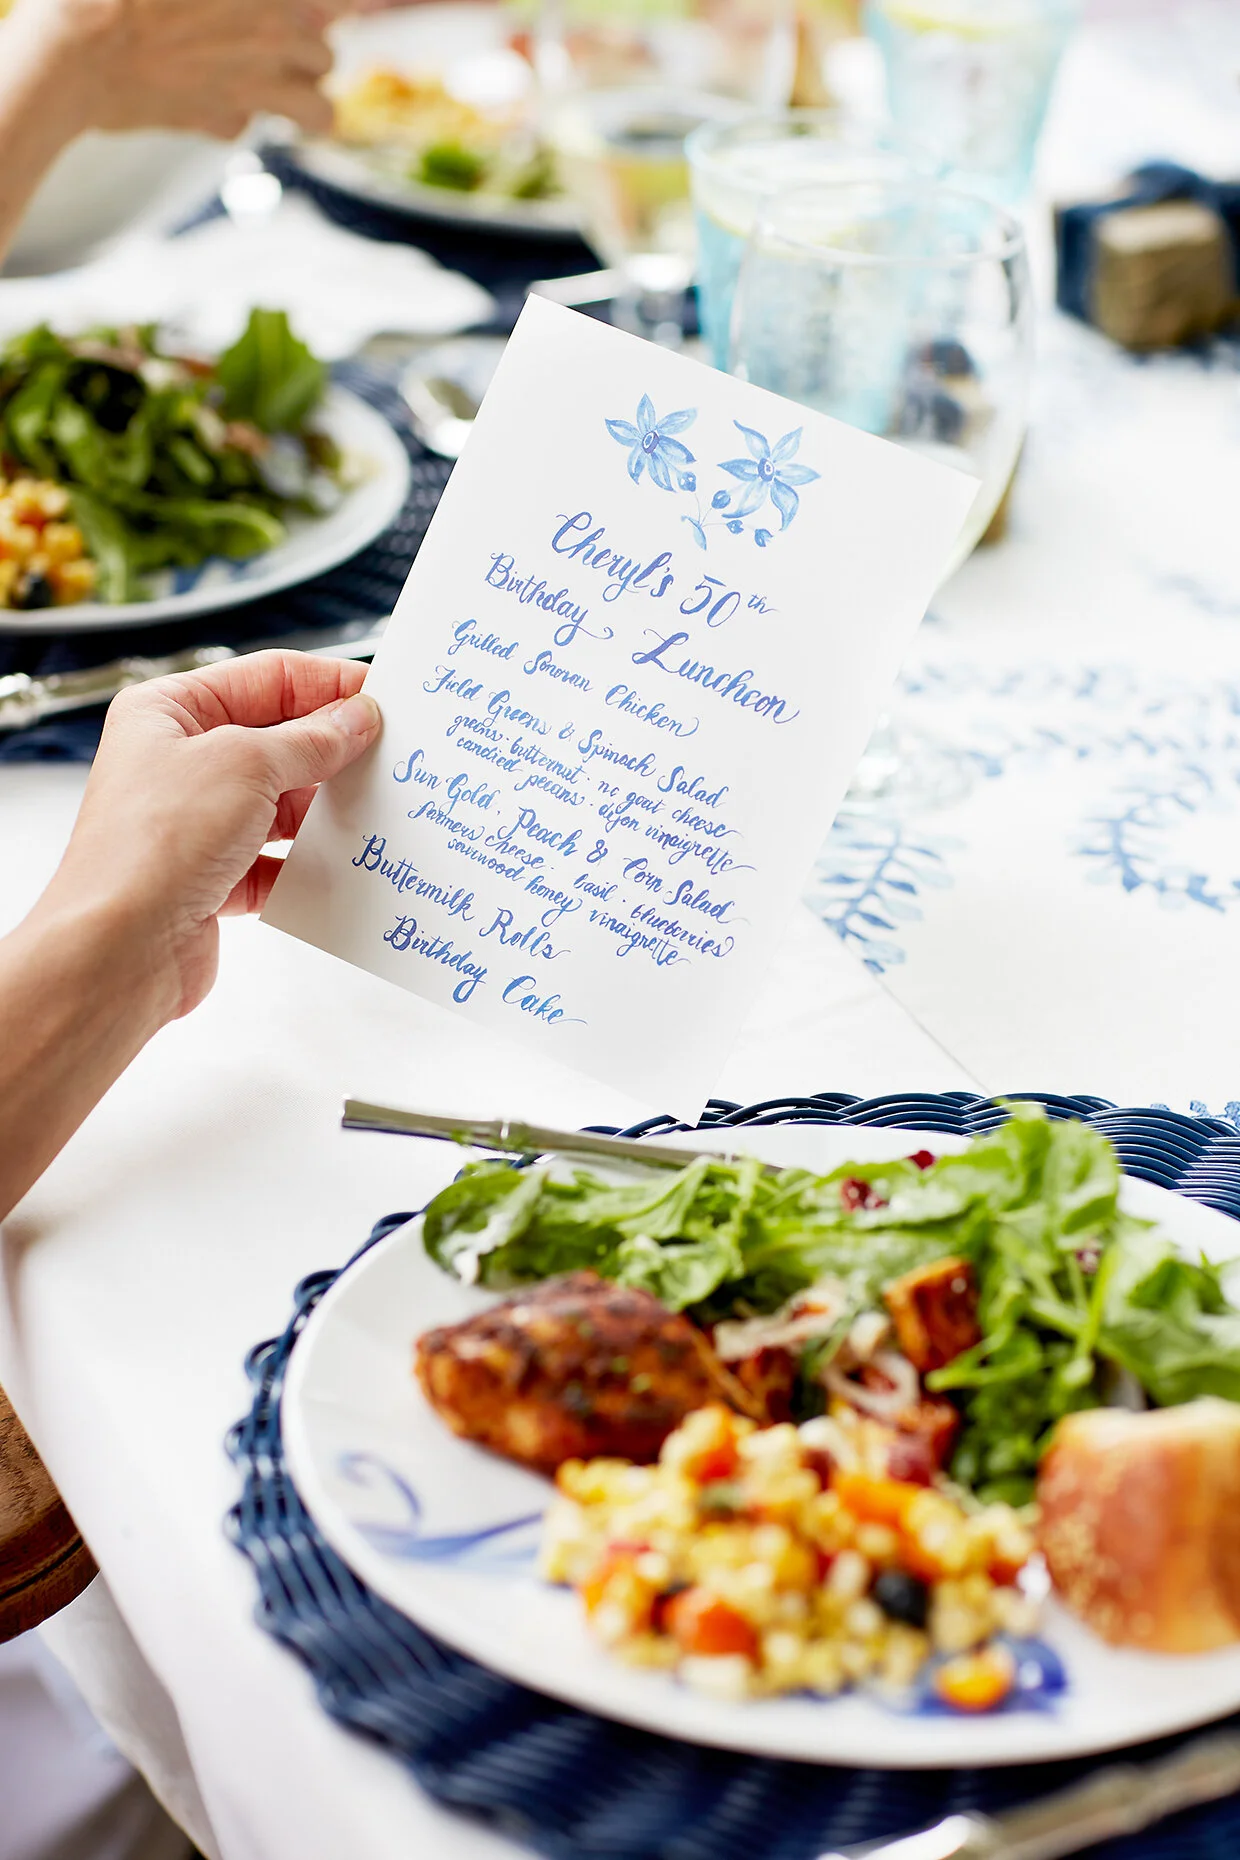 Cheryl's 50th
Birthday Luncheon
Grilled Sonoran Chicken
Field Greens & Spinach Salad
greens · butternut · nc goat cheese
candied pecans · dijon vinaigrette
Sun Gold, Peach & Corn Salad
farmers cheese · basil · blueberries
sourwood honey vinaigrette
Buttermilk Rolls
Birthday Cake